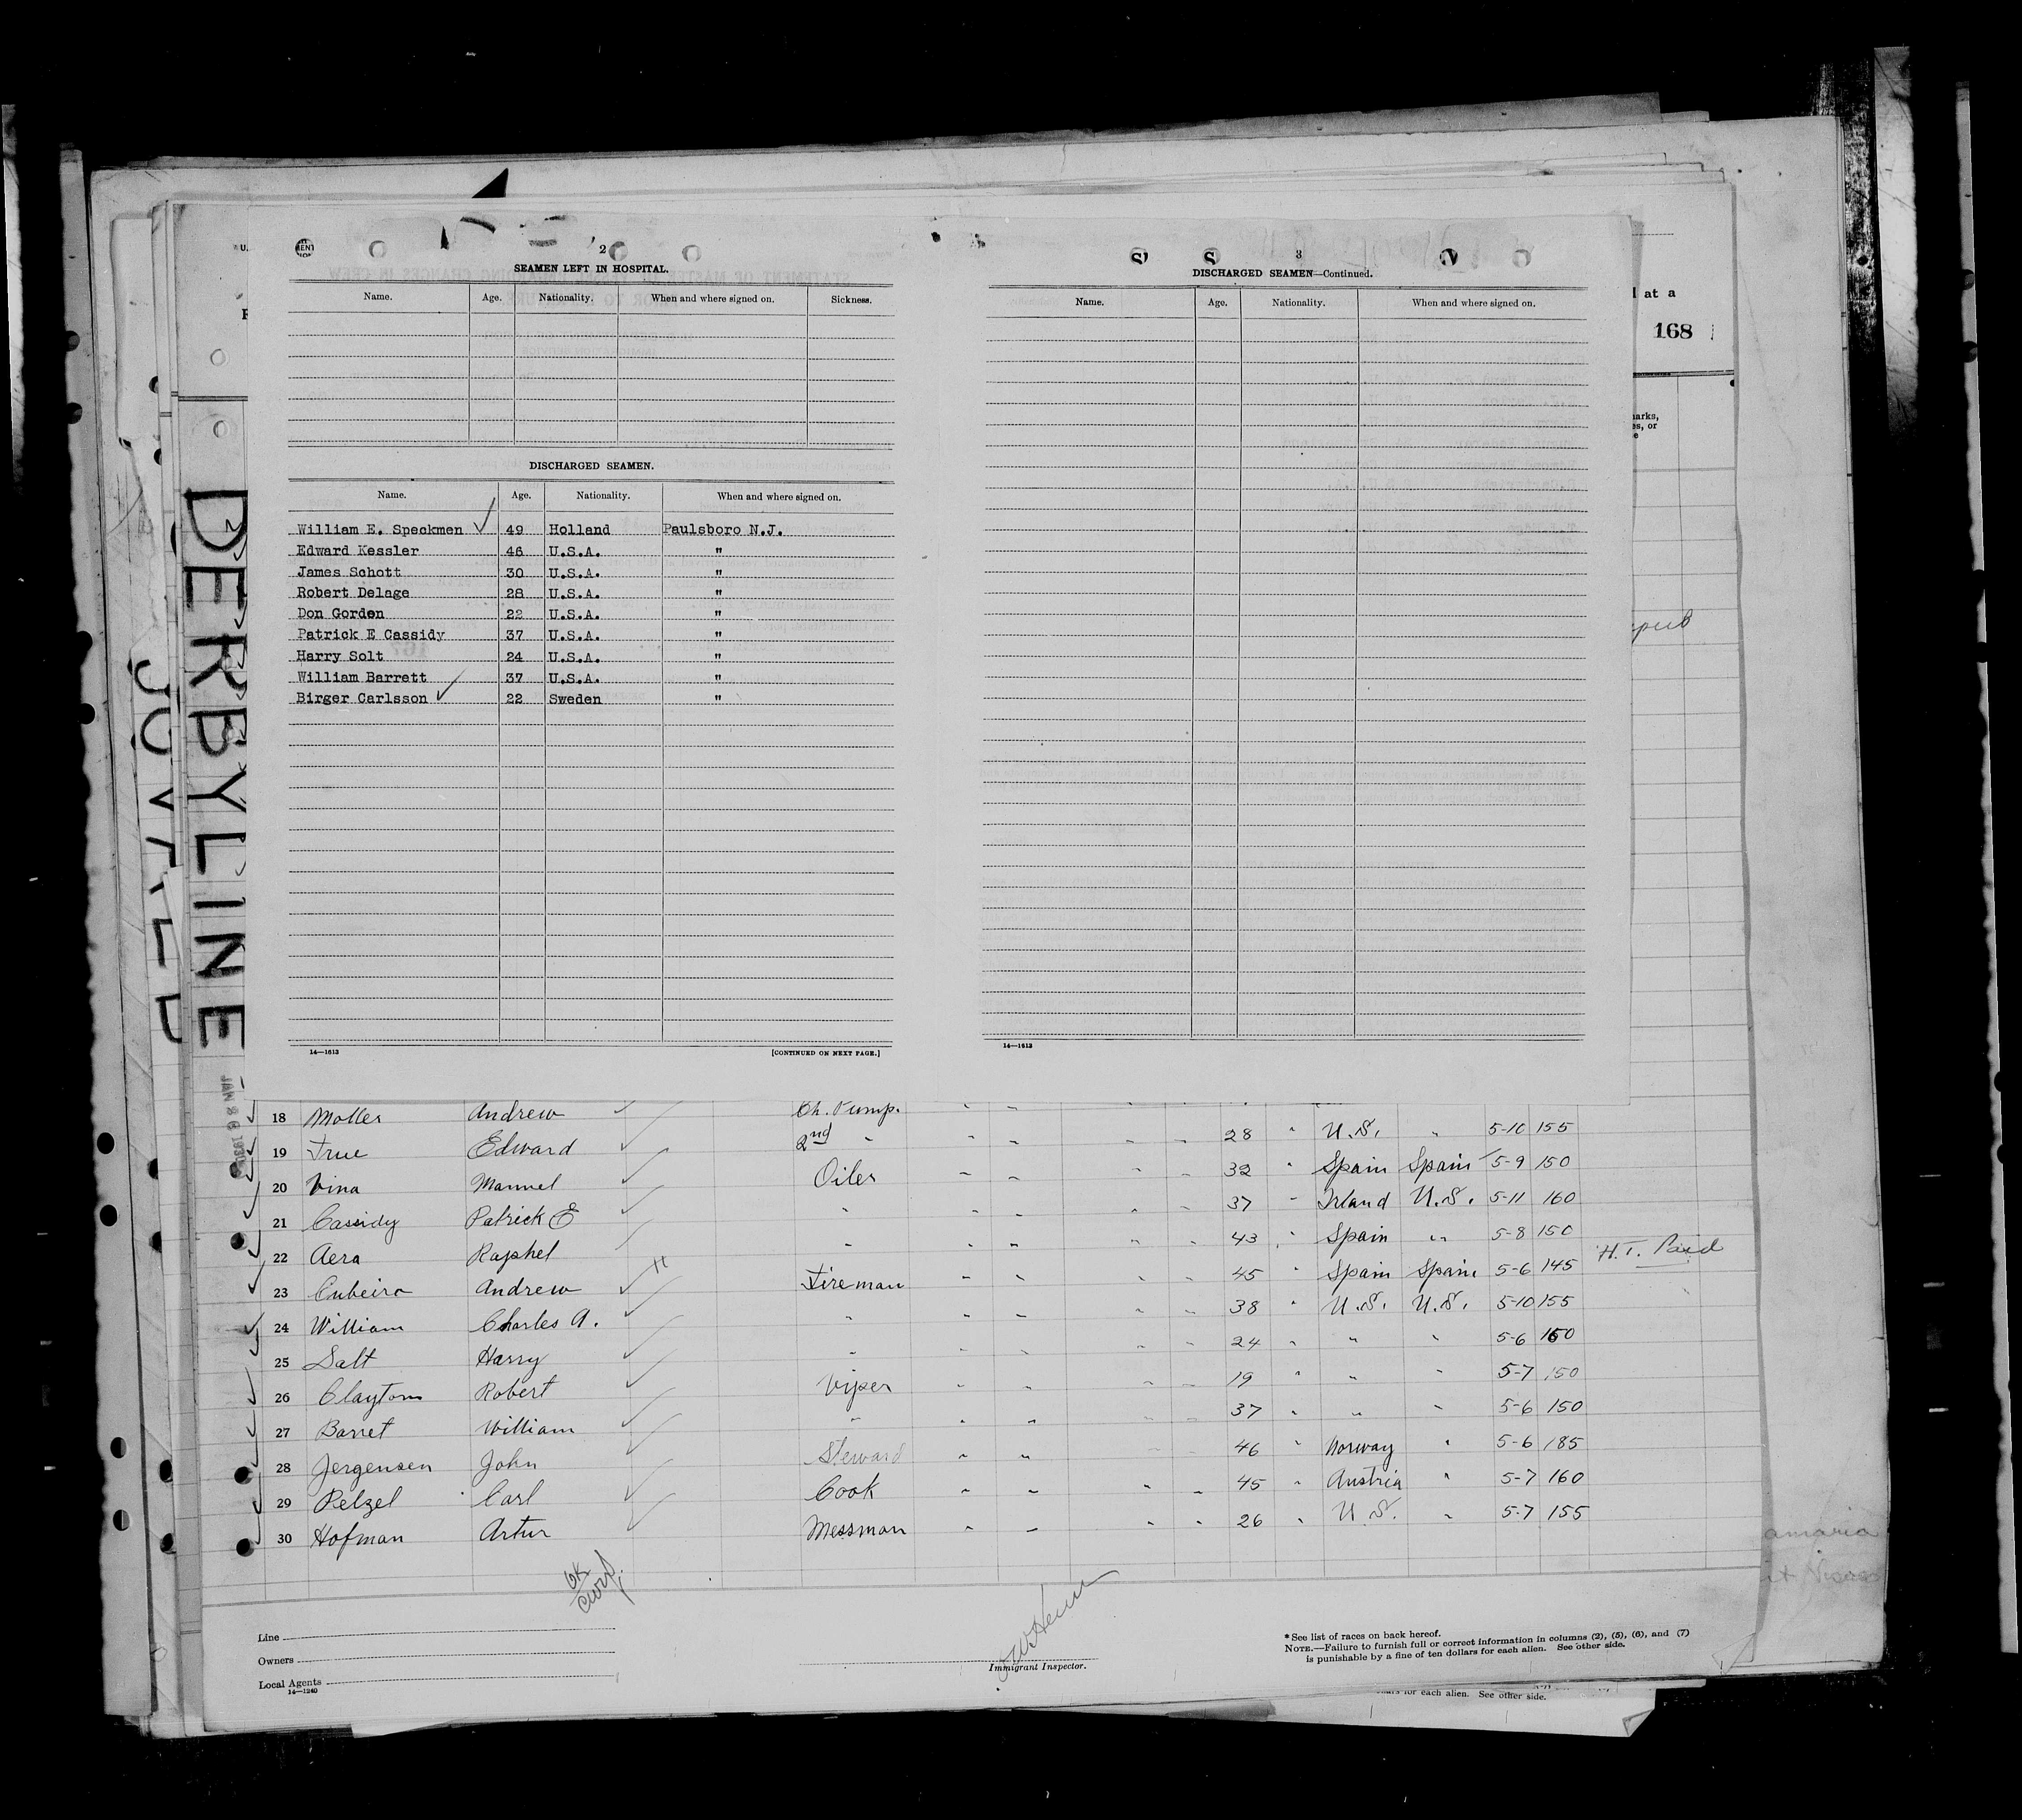 2
SEAMEN LEFT IN HOSPITAL.
Name. Age. Nationality. When and where signed on. Sickness.
DISCHARGED SEAMEN.
Name. Age. Nationality. When and where signed on.
William E. Speckmen 49 Holland Paulsboro N.J.
Edward Kessler 46 U.S.A. "
James Schott 30 U.S.A. "
Robert Delage 28 U.S.A. "
Don Gordon 22 U.S.A. "
Patrick E Cassidy 37 U.S.A. "
Harry Solt 24 U.S.A. "
William Barrett 37 U.S.A. "
Birger Carlsson 22 Sweden "
14—1613 [CONTINUED ON NEXT PAGE.]
3
DISCHARGED SEAMEN—Continued.
Name. Age. Nationality. When and where signed on.
14—1613
at a
168
DERBYLINE
18 Moller Andrew Ch. Pump. - -
19 True Edward 2nd " - - 28 " U.S. " 5-10 155
20 Vina Manuel Oiler - - 32 " Spain Spain 5-9 150
21 Cassidy Patrick E " - - 37 " Irland U.S. 5-11 160
22 Aera Raphel " - - 43 " Spain " 5-8 150
23 Cubeiro Andrew Fireman - - 45 " Spain Spain 5-6 145 H.T. Paid
24 William Charles A. " - - 38 " U.S. U.S. 5-10 155
25 Salt Harry " - - 24 " " " 5-6 160
26 Clayton Robert Viper - - 19 " " " 5-7 150
27 Barret William " - - 37 " " " 5-6 150
28 Jergensen John Steward - - 46 " Norway " 5-6 185
29 Pelzel Carl Cook - - 45 " Austria " 5-7 160
30 Hofman Artur Messman - - 26 " U.S. " 5-7 155
OK
Line
Owners
Local Agents
14—1240
Immigrant Inspector.
* See list of races on back hereof.
NOTE.—Failure to furnish full or correct information in columns (2), (5), (6), and (7)
is punishable by a fine of ten dollars for each alien. See other side.
for each alien. See other side.